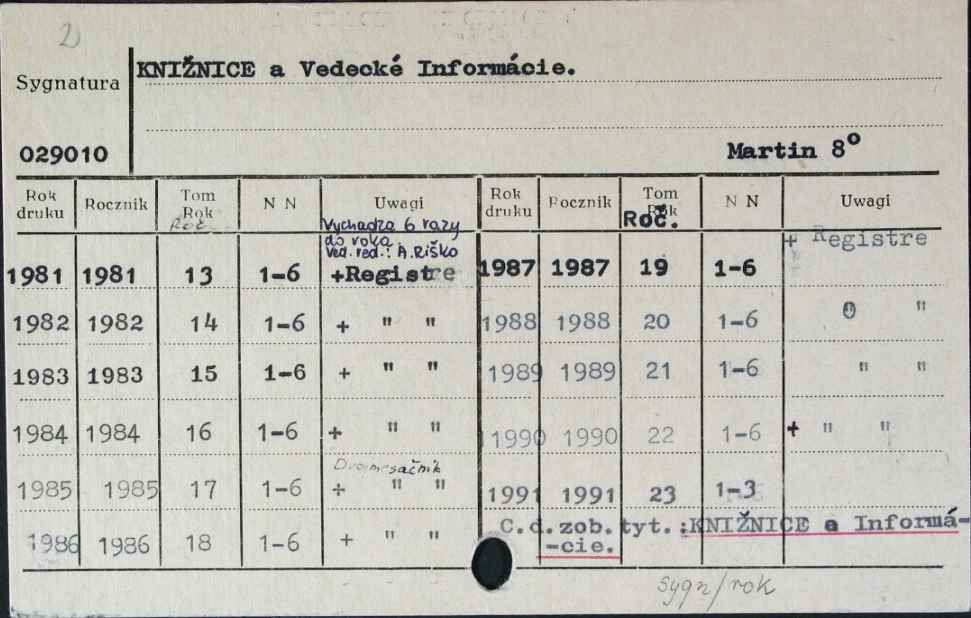 2)
KNIŽNICE a Vedecké Informácie.
Sygnatura
029010
Martin 8°
Rok druku Rocznik Tom Rok N N Uwagi Rok druku Rocznik Tom Rok N N Uwagi
Roč. Roč.
Vychádza 6 razy
do roka.
Ved. red.: A. Riško
+ Registre
1981 1981 13 1-6 +Registre 1987 1987 19 1-6
1982 1982 14 1-6 + " " 1988 1988 20 1-6 "
1983 1983 15 1-6 + " " 1989 1989 21 1-6 " "
1984 1984 16 1-6 + " " 1990 1990 22 1-6 + " "
Dvojmesačník
1985 1985 17 1-6 + " " 1991 1991 23 1-3
C.d.zob.tyt.:KNIŽNICE a Informá-
1986 1986 18 1-6 + " " -cie.
sygn/rok